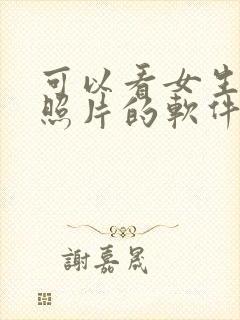 可以看女生
照片的軟件
謝嘉晟